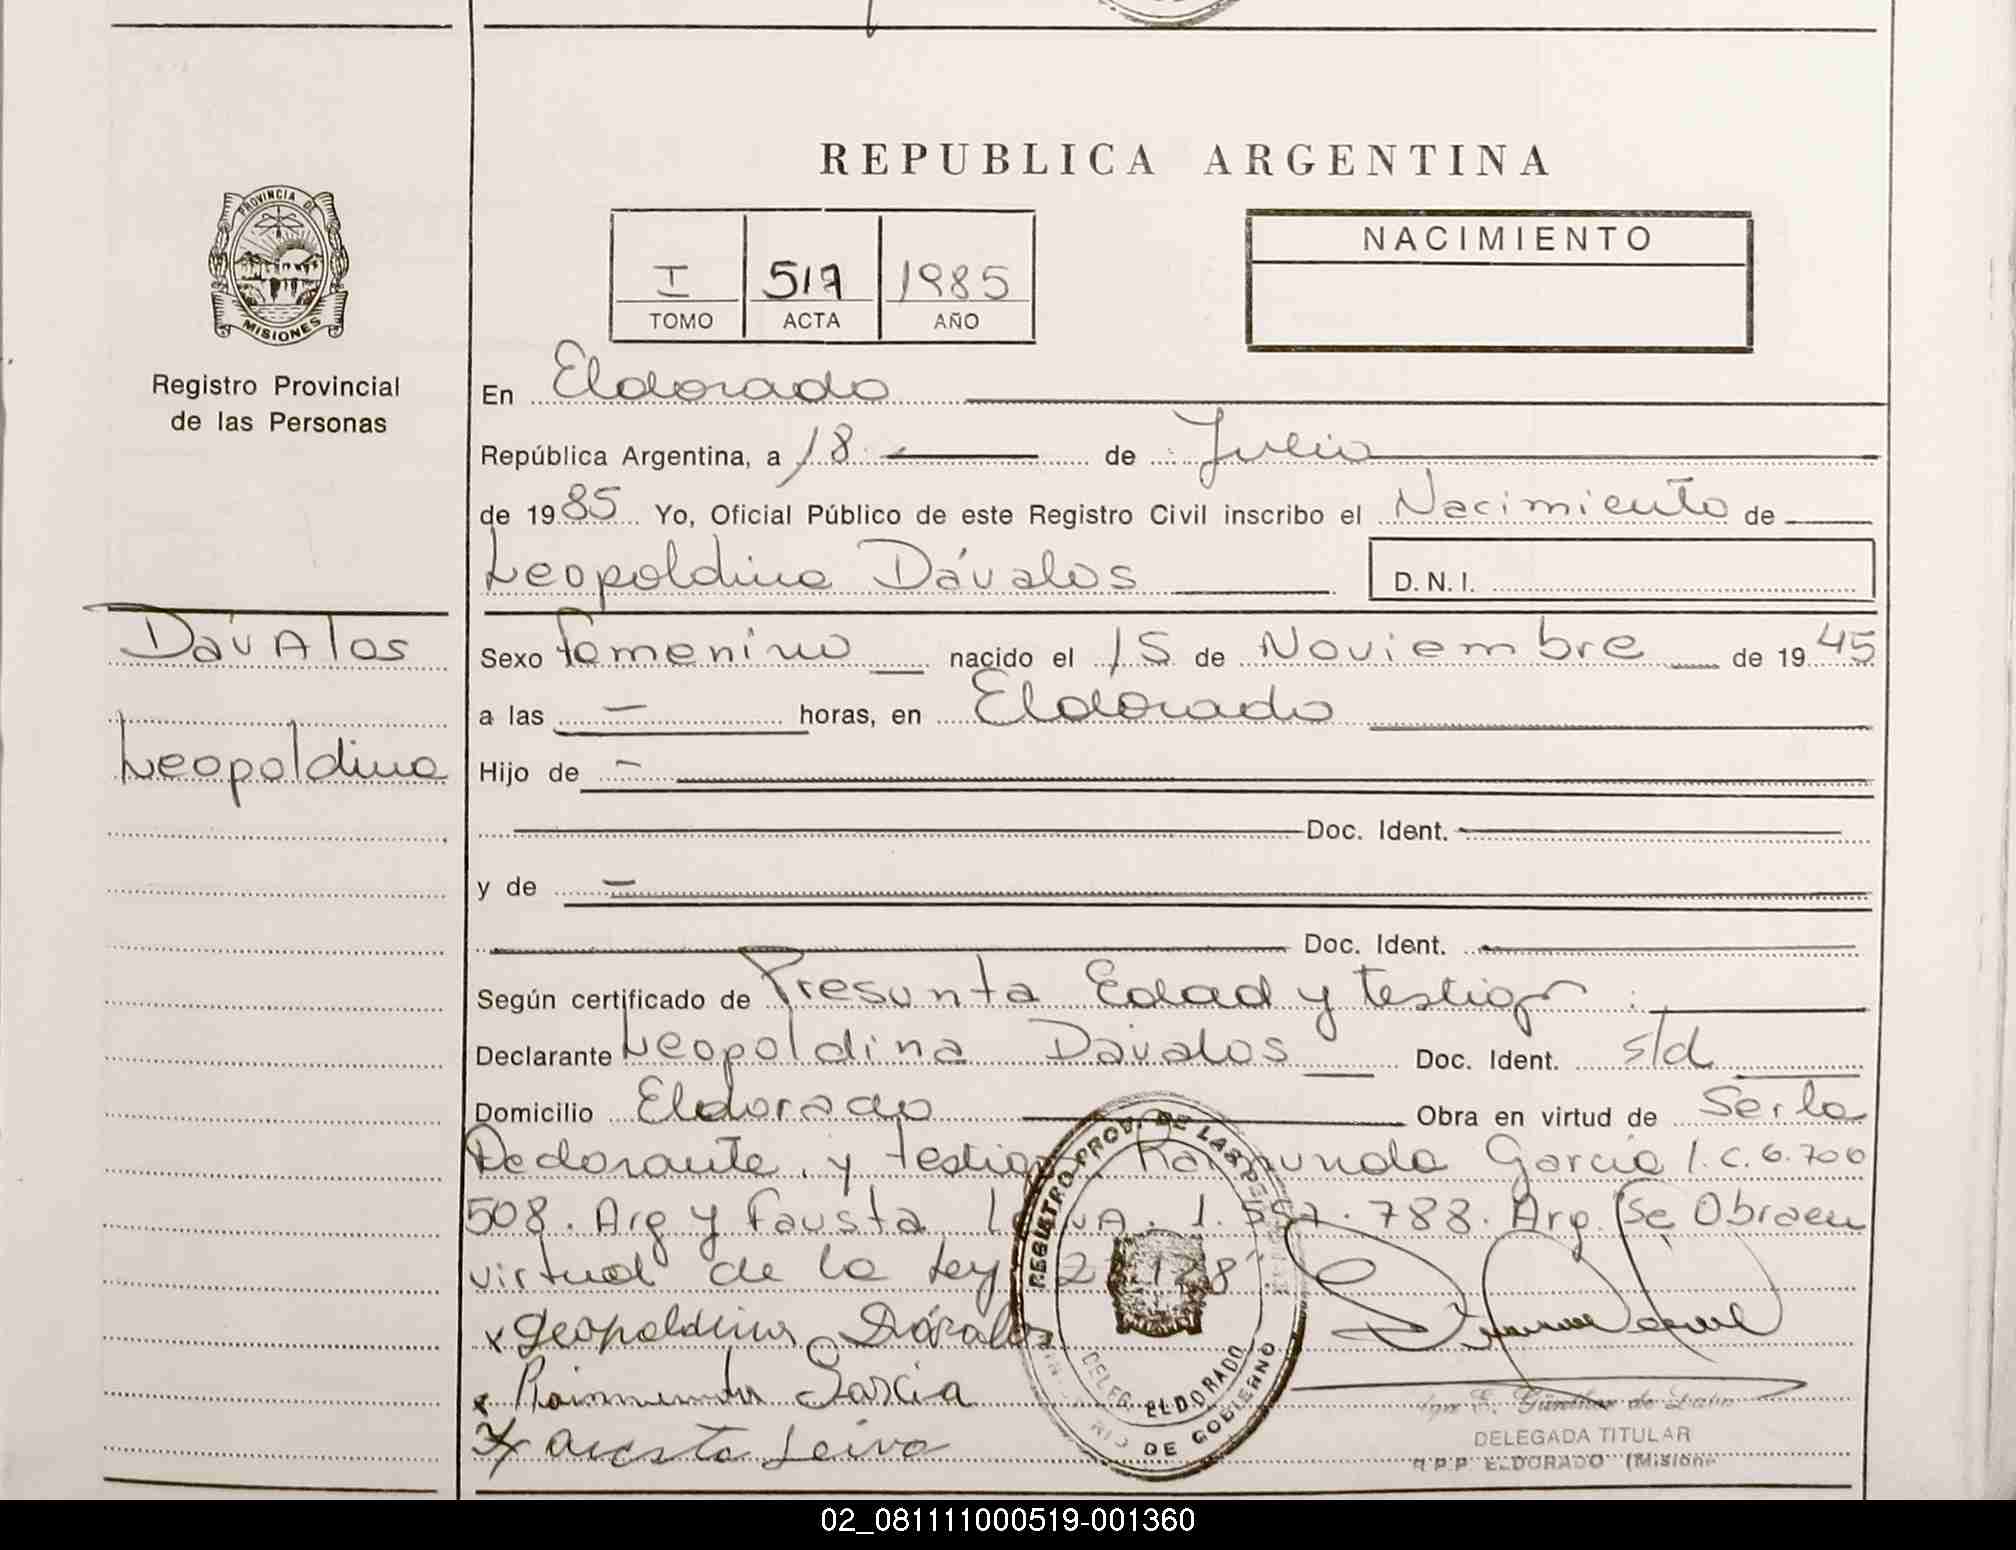 REPUBLICA ARGENTINA
PROVINCIA DE
MISIONES
Registro Provincial
de las Personas
I 517 1985
TOMO ACTA AÑO
NACIMIENTO
En Eldorado
República Argentina, a 18 de Julio
de 1985 Yo, Oficial Público de este Registro Civil inscribo el Nacimiento de
Leopoldina Dávalos D.N.I.
Dávalos
Leopoldina
Sexo femenino nacido el 15 de Noviembre de 1945
a las — horas, en Eldorado
Hijo de —
Doc. Ident.
y de —
Doc. Ident.
Según certificado de Presunta Edad y testigos
Declarante Leopoldina Dávalos Doc. Ident. s/d
Domicilio Eldorado Obra en virtud de Ser la
Declarante y testigos Raimunda García l.c. 6.700
508. Arg y Fausta 788. Arg. Se Obra en
virtud de la Ley
x Leopoldina Dávalos
x Raimunda Garcia
x Fausta Leiva
REGISTRO PROV. DE LAS
DELEG. ELDORADO
DE GOBIERNO
DELEGADA TITULAR
R.P.P. ELDORADO (Misiones
02_081111000519-001360